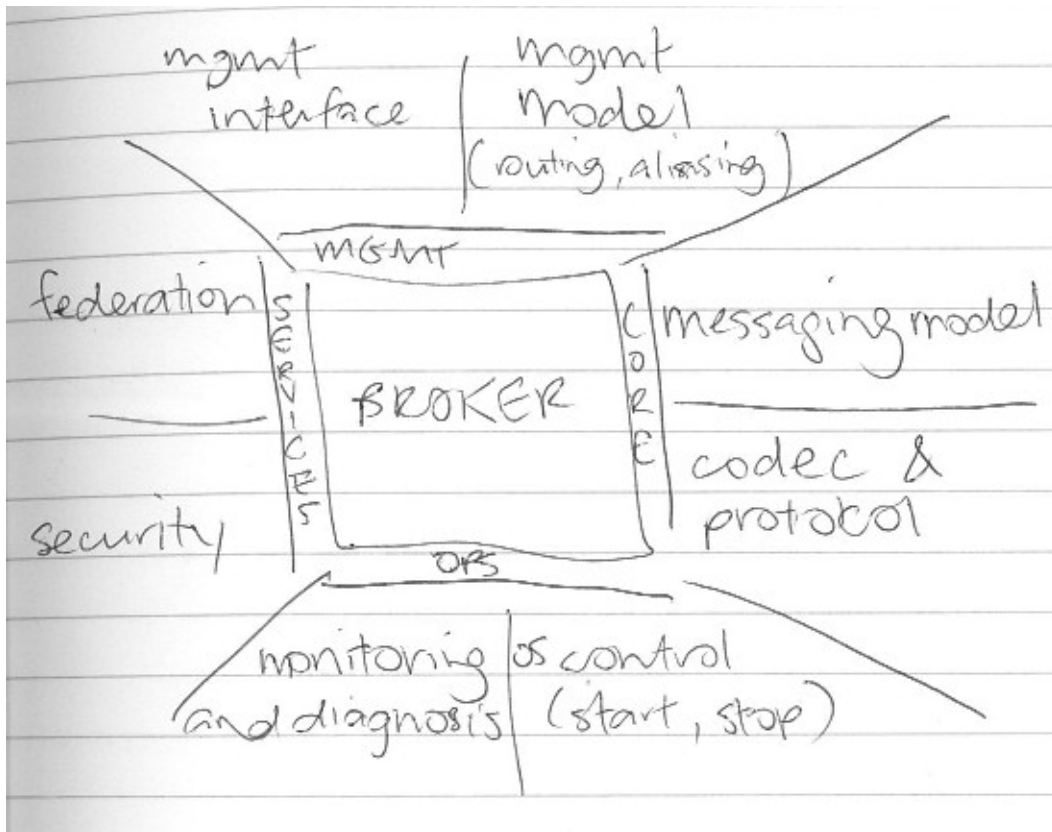 mgmt
interface
mgmt
model
(routing, aliasing)
MGMT
federation
SERVICES
security
BROKER
CORE
messaging model
codec &
protocol
OPS
monitoring
and diagnosis
os control
(start, stop)